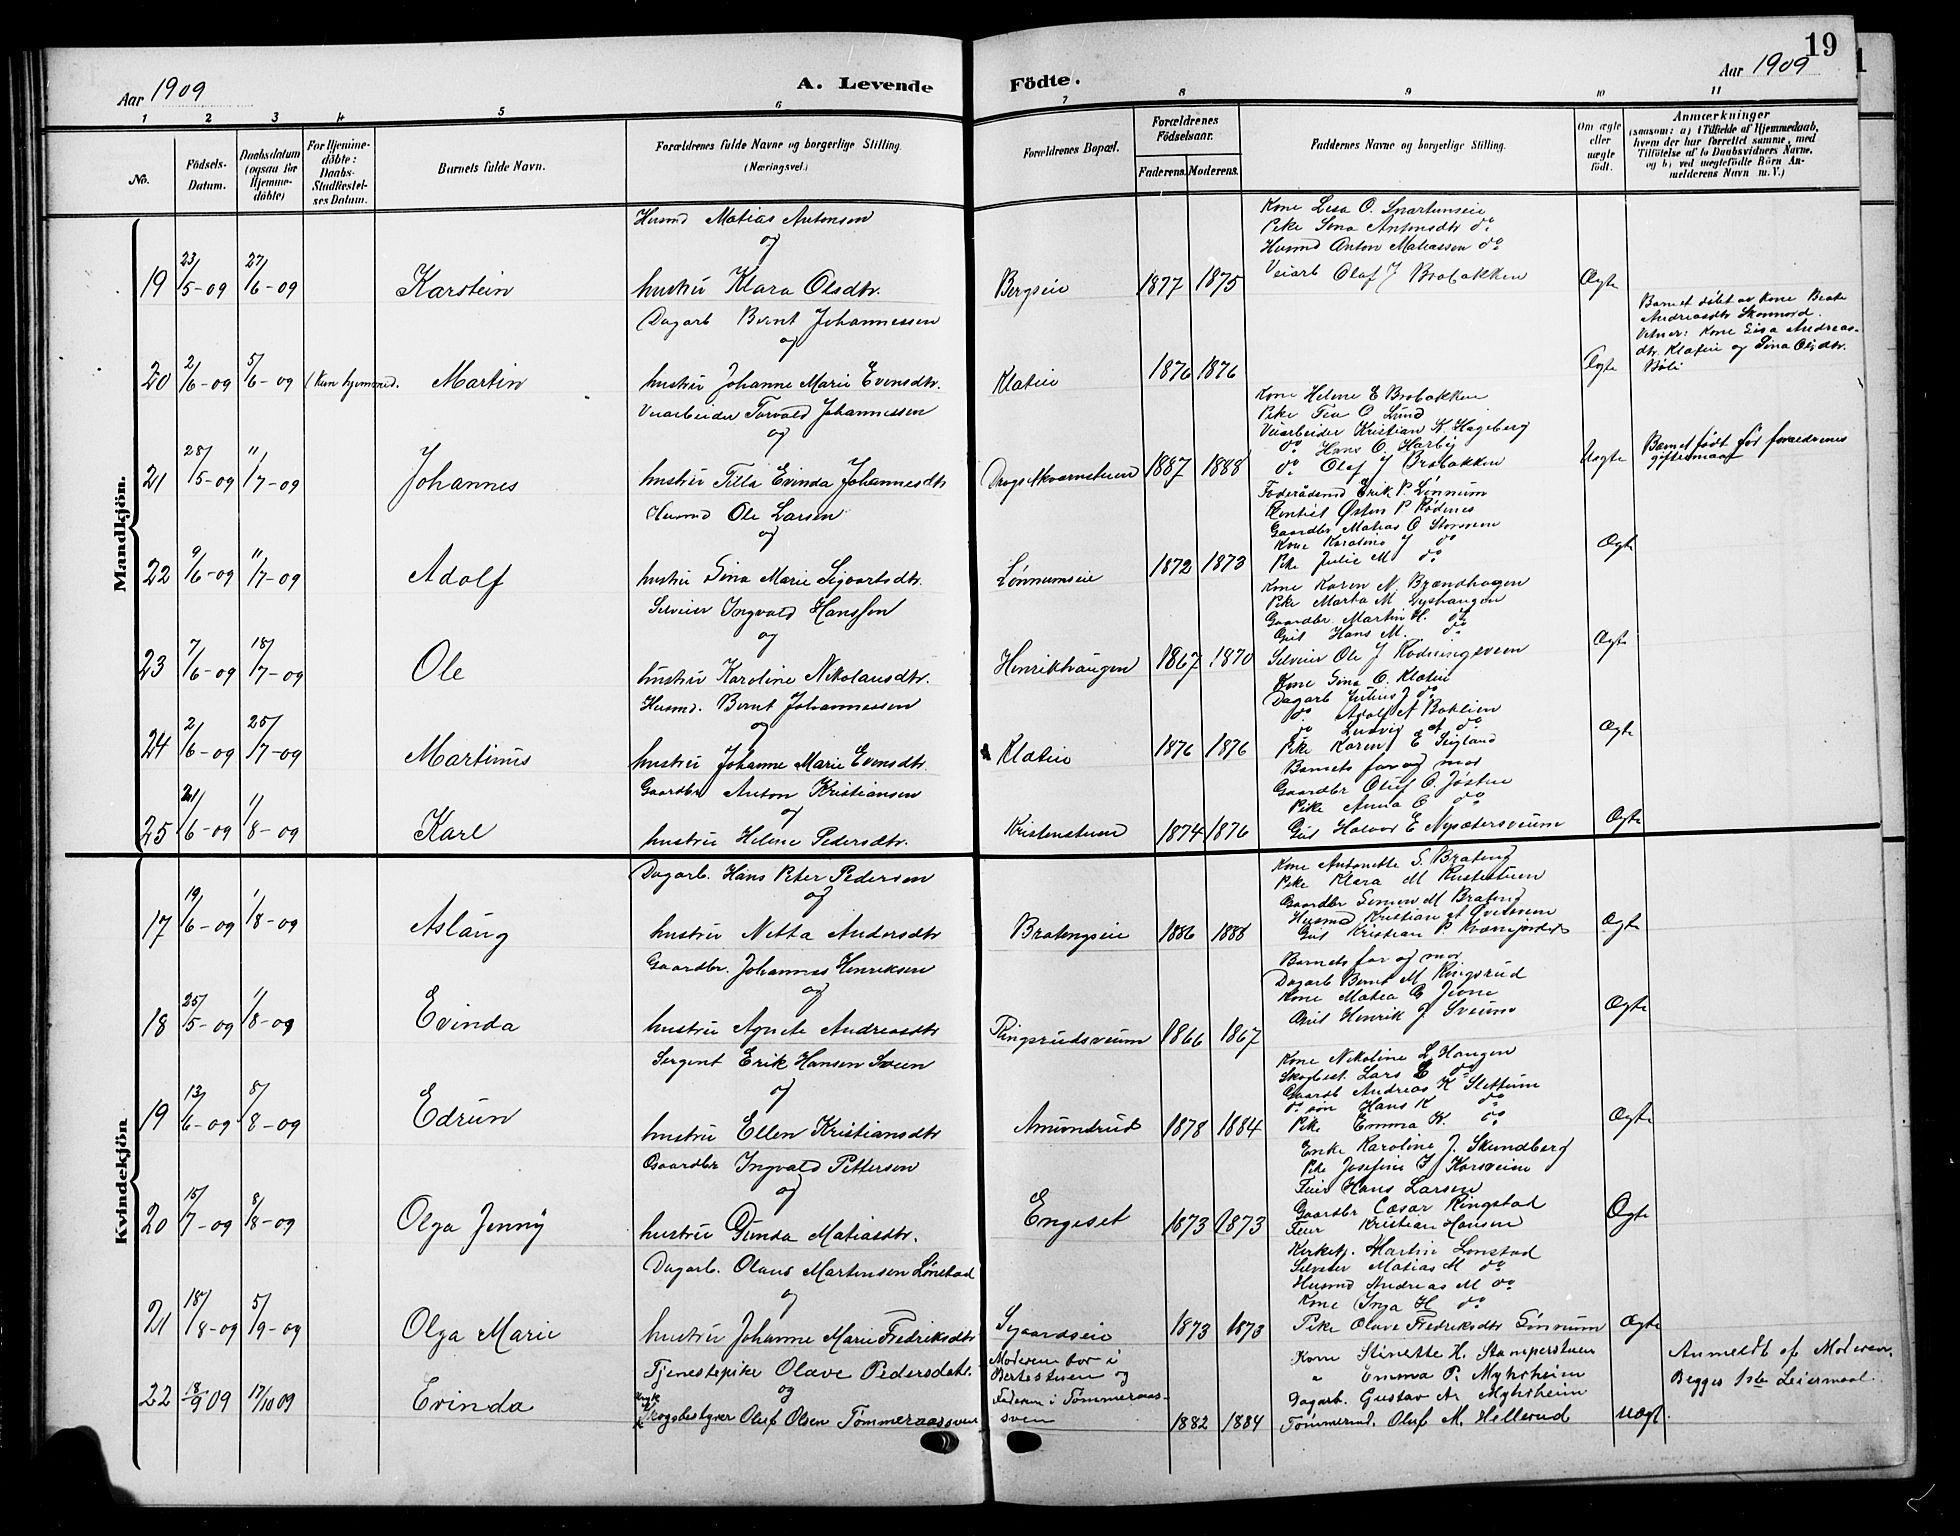 19
Aar 1909
A. Levende
Födte.
Aar 1909
1 2 3 4 5 6 7 8 9 10 11
No.
Födsels-Datum.
Daabsdatum (ogsaa for Hjemme-döbte)
For Hjemme-döbte: Daabs-Stadfæstel-ses Datum.
Barnets fulde Navn.
Forældrenes fulde Navne og borgerlige Stilling.
(Næringsvei.)
Forældrenes Bopæl.
Forældrenes Födselsaar.
Faderens. Moderens.
Faddernes Navne og borgerlige Stilling.
Om ægte eller uægte födt.
Anmærkninger
(saasom: a) i Tilfælde af Hjemmedaab, hvem der har forrettet samme, med Tilföielse af to Daabsvidners Navne, og b) ved uegtefödte Börn Anmelderens Navn m. V.)
Mandkjön.
Husmd Matias Antonsen
og
19 23/5-09 27/6-09 Karstein hustru Klara Olsdtr. Bergseie 1877 1875 Ægte
Kone Lisa O. Snartumseie
Pike Sina Antonsdtr do
Husmd Anton Matiassen do
Veiarb Olaf J Brobakken
Dagarb Bernt Johannessen
og
20 2/6-09 5/6-09 (Kun hjemmed. Martin hustru Johanne Marie Evensdtr. Klateie 1876 1876 Ægte
Barnet döbt av Kone Beate
Andreasdtr Skonnord.
Vitner: Kone Lisa Andreas-
dtr Klateie og Sina Olsdtr.
Böli
Veiarbeider Torvald Johannessen
og
21 28/5-09 11/7-09 Johannes hustru Tilla Evinda Johannesdtr 1887 1888 Uægte
Kone Helene E Brobakken
Pike Tea O Lund
Veiarbeider Kristian K. Hageberg
do Hans O. Harby
do Olaf J Brobakken
Barnet födt för foreldrenes
giftermaal
Husmd Ole Larsen
og
22 9/6-09 11/7-09 Adolf hustru Sina Marie Sigvartsdtr. Lönnumseie 1872 1873 Ægte
Föderådsmd Erik P. Lönnum
Östen P Rödenes
Gaardbr Matias O Storsveen
Kone Karoline J do
Pike Julie M do
Selveier Ingvald Hanssen
og
23 7/6-09 18/7-09 Ole hustru Karoline Nikolausdtr. Henrikhaugen 1867 1870 Ægte
Kone Karen N. Brændhagen
Pike Marta M. Lyshaugen
Gaardbr. Martin H. do
Gut Hans M. do
Selveier Ole J Rödningsveen
Husmd. Bernt Johannessen
og
24 2/6-09 25/7-09 Martinus hustru Johanne Marie Evensdtr. Klateie 1876 1876 Ægte
Kone Sina O. Klateie
Dagarb Julius J do
do Adolf A Baklien
do Ludvig A do
Pike Karen E
Gaardbr Anton Kristiansen
og
25 21/6-09 1/8-09 Karl hustru Helene Pedersdtr. Kristenstuen 1874 1876 Ægte
Barnets far og mor
Gaardbr Oluf O. Jöstu
Pike Anna O do
Gut Halvor E Nysætersveum
Kvindekjön
Dagarb. Hans Peter Pedersen
og
17 19/6-09 1/8-09 Aslaug hustru Netta Andersdtr Bratengseie 1886 1888 Ægte
Kone Antonette S. Brateng
Pike Klara M Rustestuen
Gaardbr Simen M Brateng
Husmd Kristian A
Gut Kristian P.
Gaardbr. Johannes Henriksen
og
18 25/5-09 1/8-09 Evinda hustru Agnete Andreasdtr Ringsrudsveum 1866 1867 Ægte
Barnets far og mor
Dagarb Bernt M Ringsrud
Kone Matea G Jevne
Gut Henrik J Sveum
Sergent Erik Hansen Sveen
og
19 13/6-09 8/8-09 Edrun hustru Ellen Kristiansdtr Amundrud 1878 1884 Ægte
Kone Nikoline L Haugen
Skogbest. Lars L do
Gaardb Andreas K Slettum
do sön Hans K do
Pike Emma K. do
Gaardbr Ingvald Pettersen
og
20 15/7-09 8/8-09 Olga Jenny hustru Gunda Matiasdtr. Engeset 1873 1873 Ægte
Enke Karoline J. Skundberg
Pike Josefine J Korsveien
Feier Hans Larsen
Gaardbr Cæsar Ringstad
Feier Kristian Hansen
Dagarb. Olaus Martinsen Lönstad
og
21 18/8-09 5/9-09 Olga Marie hustru Johanne Marie Fredriksdtr Sigaardseie 1873 1873 Ægte
Kirketj. Martin Lonstad
Selveier Matias M do
Husmd Andreas M do
Kone Inga H do
Pike Olave Fredriksdtr Sönnum
Tjenestepike Olave Pedersdatr.
og
22 18/9 09 17/10 09 Evinda Skogbestyrer Oluf Olsen Tömmeraassveen
Moderen bor i
Bertestuen og
Faderen i Tömmeraas-
sveen
1882 1884
Kone Stinette H. Stamperstuen
" Emma P. Myhrheim
Dagarb. Gustav A. Myhrheim
Tömmermd. Oluf M. Hellerud
uægt.
Anmeldt af Moderen.
Begges 1ste Leiermaal.